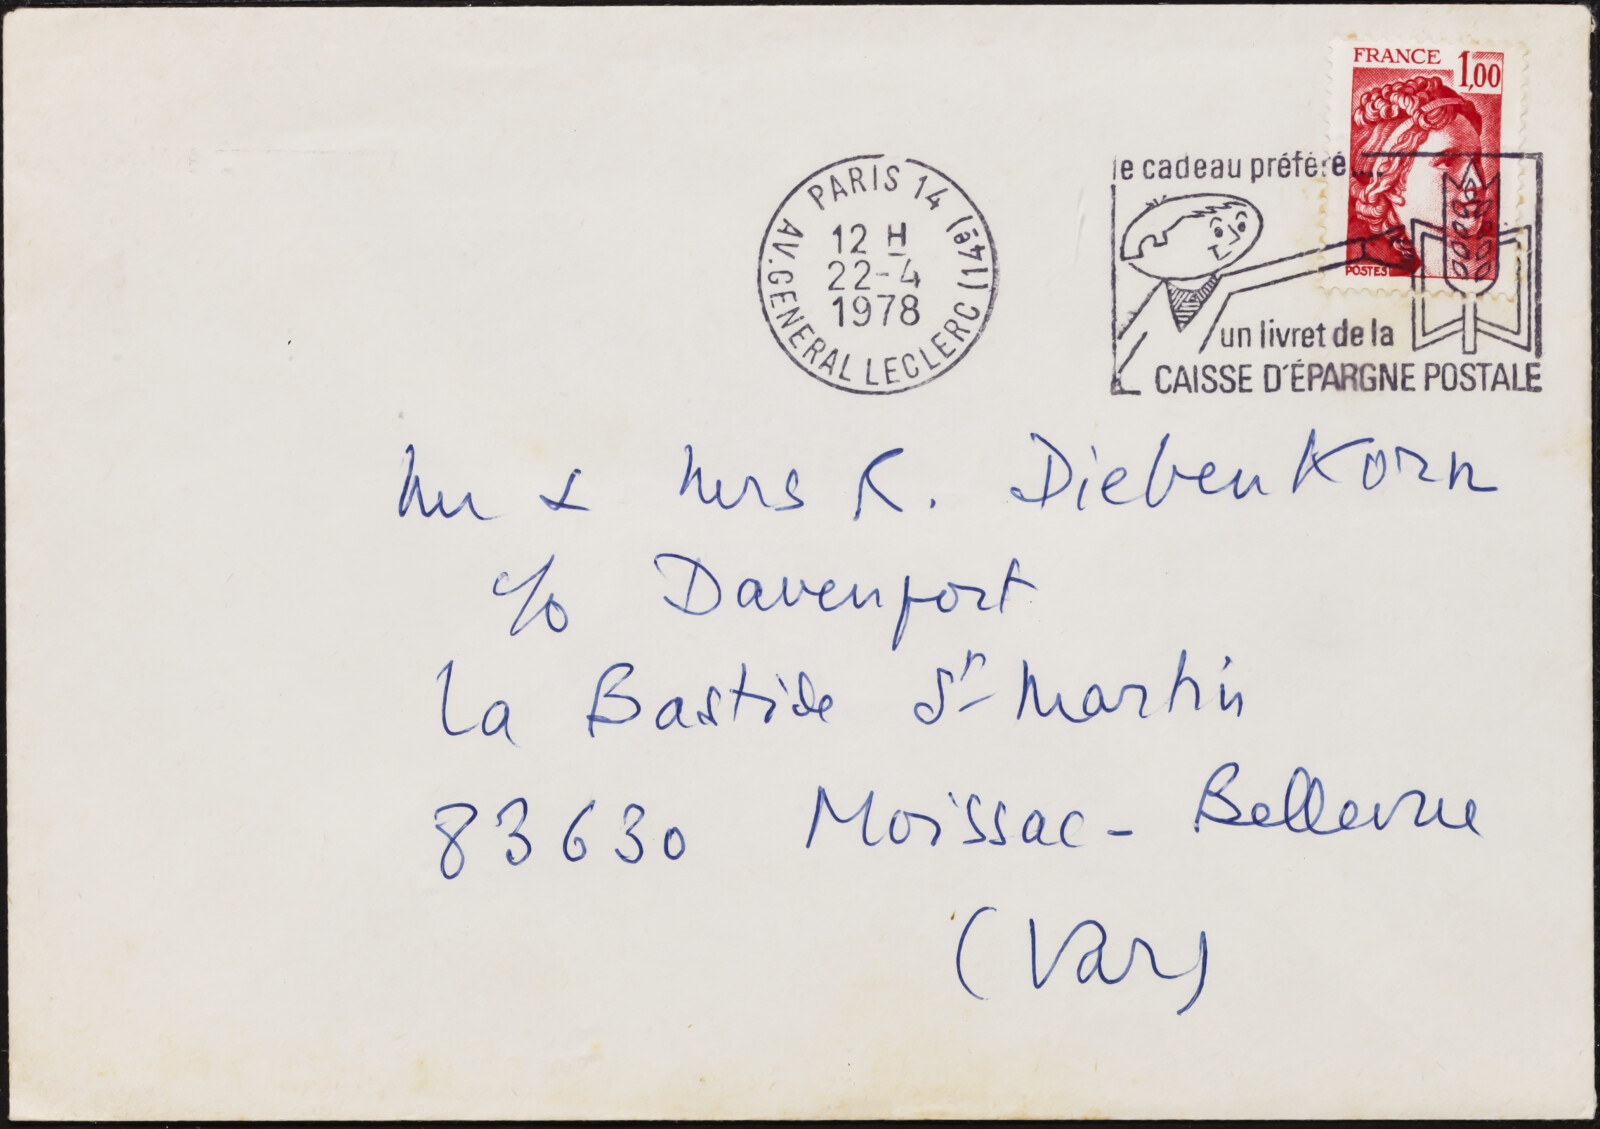 FRANCE 1,00
POSTES
PARIS 14 (14e)
AV. GENERAL LECLERC
12 H
22-4
1978
le cadeau préféré....
un livret de la
CAISSE D'ÉPARGNE POSTALE
Mr & Mrs R. Diebenkorn
c/o Davenport
La Bastide St Martin
83630 Moissac-Bellevue
(Var)